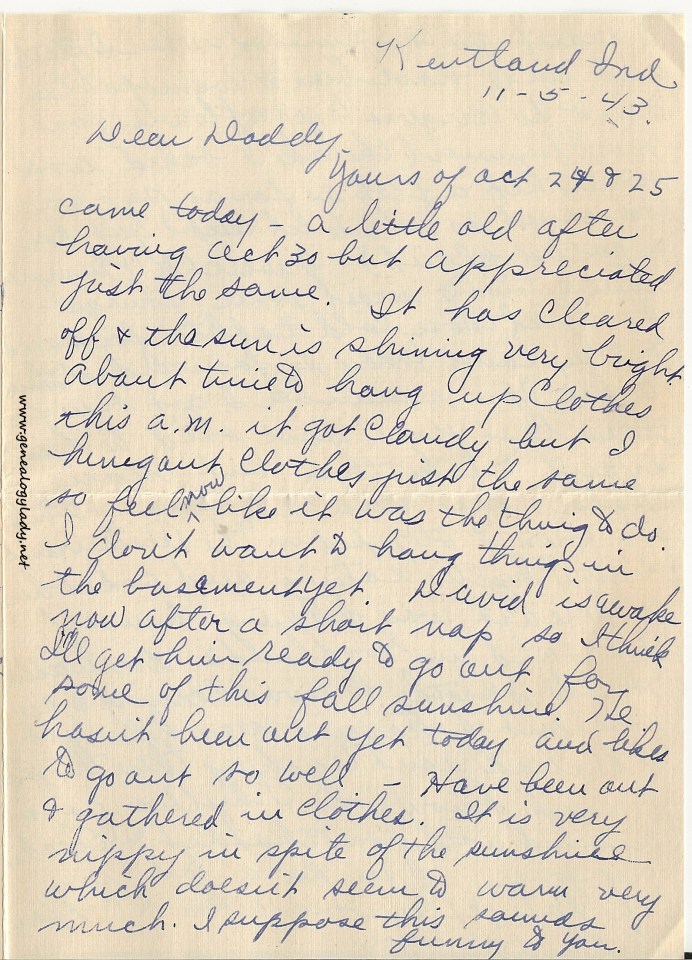 Kentland Ind
11-5-43.
Dear Daddy,
Yours of Oct 24 & 25
came today - a little old after
having Oct 30 but appreciated
just the same. It has cleared
off & the sun is shining very bright.
About time to hang up clothes
this a.m. it got cloudy but I
hung out clothes just the same
so feel now like it was the thing to do.
I don't want to hang things in
the basement yet David is awake
now after a short nap so I think
I'll get him ready to go out for
some of this fall sunshine. He
hasn't been out yet today and likes
to go out so well - Have been out
& gathered in clothes. It is very
nippy in spite of the sunshine
which doesn't seem to warm very
much. I suppose this sounds
funny to you.
www.genealogylady.net